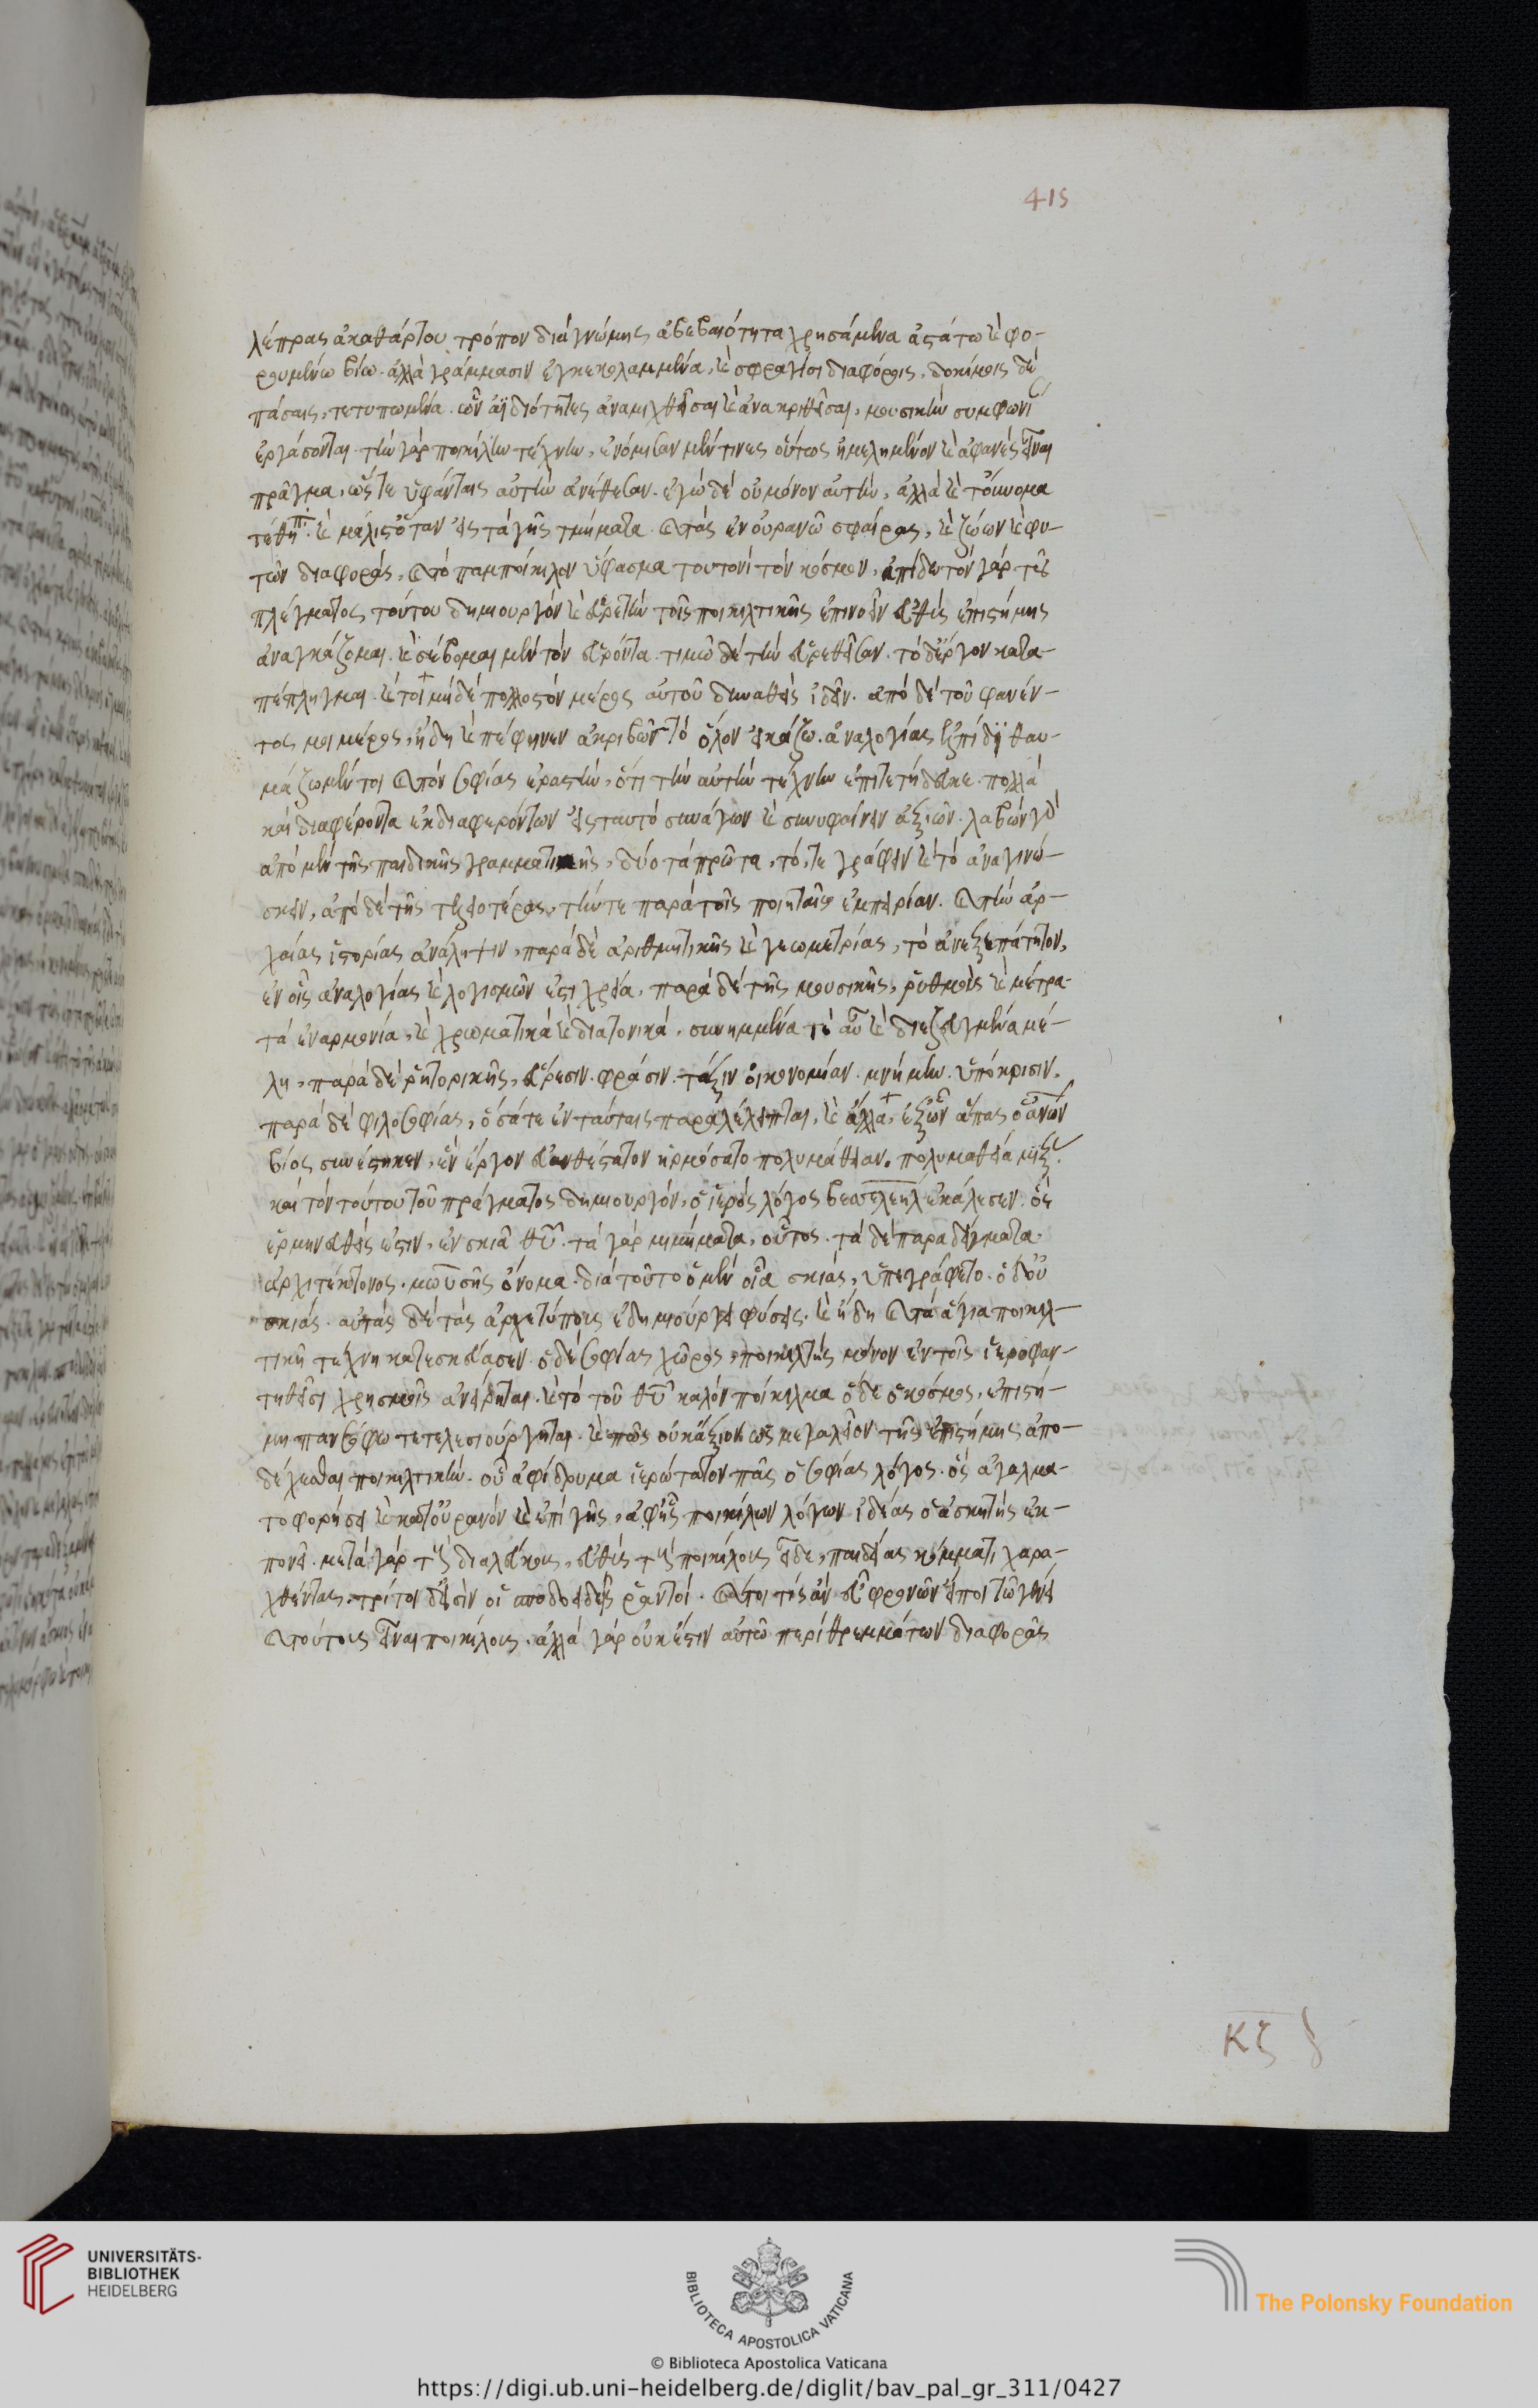 415
λέπρας ἀκαθάρτου τρόπον διὰ γνώμης ἀβεβαιότητα χρησάμενα ἀστάτω καὶ φο-
ρουμένω βίω. ἀλλὰ γράμμασιν ἐγκεκολαμμένα, καὶ σφραγῖσι διαφόροις, δοκίμοις δὲ
πάσαις, τετυπωμένα. ὧν αἱ ἰδιότητες ἀναμιχθεῖσαι καὶ ἀνακριθεῖσαι, μουσικὴν συμφωνί
ἐργάσονται. τὴν γὰρ ποικίλην τέχνην, ἐνόμισαν μέν τινες οὕτως ἠμελημένον καὶ ἀφανὲς εἶναι
πρᾶγμα, ὥστε ὑφάνταις αὐτὴν ἀνέθεσαν. ἐγὼ δὲ οὐ μόνον αὐτὴν, ἀλλὰ καὶ τοὔνομα
τέθηπα. καὶ μάλισθ' ὅταν εἰς τὰ γῆς τμήματα καὶ τὰς ἐν οὐρανῶ σφαίρας, καὶ ζώων καὶ φυ-
τῶν διαφορὰς, καὶ τὸ παμποίκιλον ὕφασμα τουτονὶ τὸν κόσμον, ἀπίδω τὸν γὰρ τοῦ
πλέγματος τούτου δημιουργὸν καὶ εὑρετὴν τῆς ποικιλτικῆς ἐπινοεῖν εὐθὺς ἐπιστήμης
ἀναγκάζομαι. καὶ σέβομαι μὲν τὸν εὑρόντα. τιμῶ δὲ τὴν εὑρεθεῖσαν. τὸ δ' ἔργον κατα-
πέπληγμαι. καίτοι μηδὲ πολλοστὸν μέρος αὐτοῦ δυνηθεὶς ἰδεῖν. ἀπὸ δὲ τοῦ φανέν-
τος μοι μέρος, ἤδη καὶ πέφηνεν ἀκριβῶν τὸ ὅλον εἰκάζω. ἀναλογίας ἐλπίδι θαυ-
μάζω μέντοι καὶ τὸν σοφίας ἐραστὴν, ὅτι τὴν αὐτὴν τέχνην ἐπιτετήδευκε. πολλὰ
καὶ διαφέροντα ἐκ διαφερόντων εἰς ταυτὸ συνάγων καὶ συνυφαίνειν ἀξιῶν. λαβὼν γὰρ
ἀπὸ μὲν τῆς παιδικῆς γραμματικῆς, δύο τὰ πρῶτα, τό, τε γράφειν καὶ τὸ ἀναγινώ-
σκειν, ἀπὸ δὲ τῆς τελειοτέρας, τήν τε παρὰ τοῖς ποιηταῖς ἐμπειρίαν. καὶ τὴν ἀρ-
χαίας ἱστορίας ἀνάληψιν, παρὰ δὲ ἀριθμητικῆς καὶ γεωμετρίας, τὸ ἀνεξαπάτητον,
ἐν οἷς ἀναλογίας καὶ λογισμῶν ἐστι χρεία, παρὰ δὲ τῆς μουσικῆς, ῥυθμοὺς καὶ μέτρα-
τὰ ἐναρμονία, καὶ χρωματικὰ καὶ διατονικά, συνημμένα τὲ αὖ καὶ διεζευγμένα μέ-
λη, παρὰ δὲ ῥητορικῆς, εὕρεσιν. φράσιν. τάξιν οἰκονομίαν. μνήμην. ὑπόκρισιν,
παρὰ δὲ φιλοσοφίας, ὅσα τε ἐν ταύταις παραλέλειπται, καὶ ἄλλα, ἐξ ὧν ἅπας ὁ ἀνῶν
βίος συνέστηκεν, ἓν ἔργον εὐανθέστατον ἡρμόσατο πολυμάθειαν. πολυμαθεία μίξ
καὶ τὸν τούτου τοῦ πράγματος δημιουργὸν, ὁ ἱερὸς λόγος βεσελεὴλ ἐκάλεσεν. ὃς
ἑρμηνευθείς ἐστιν, ἐν σκιᾶ θῦ. τὰ γὰρ μιμήματα, οὗτος. τὰ δὲ παραδείγματα.
ἀρχιτέκτονος. μωυσῆς ὄνομα. διὰ τοῦτο ὁ μὲν οἷα σκιὰς, ὑπεγράφετο. ὁ δ' οὐ
σκιὰς. αὐτὰς δὲ τὰς ἀρχετύπους ἐδημιούργει φύσεις. καὶ ἤδη καὶ τὰ ἅγια ποικιλ-
τικῆ τέχνη κατεσκεύασεν. ὁ δὲ σοφίας χῶρος, ποικιλτὴς μόνον ἐν τοῖς ἱεροφαν-
τηθεῖσι χρησμοῖς ἀνείρηται. καὶ τὸ τοῦ θῦ καλὸν ποίκιλμα ὅδε ὁ κόσμος, ἐπιστή-
μη πανσόφω τετελεσιούργηται. καὶ πῶς οὐκ ἄξιον ὡς μεγαλεῖον τῆς ἐπιστήμης ἀπο-
δέχεσθαι ποικιλτικὴν. οὗ ἀφίδρυμα ἱερώτατον πᾶς ὁ σοφίας λόγος. ὃς ἀγαλμα-
τοφορήσει καὶ κατ' οὐρανὸν καὶ ἐπὶ γῆς, ἀφ' ἧς ποικίλων λόγων ἰδέας ὁ ἀσκητὴς ἐκ-
πονεῖ. μετὰ γὰρ τοὺς διαλεύκους, εὐθὺς τοὺς ποικίλους εἶδε, παιδείας κόμματι χαρα-
χθέντας. τρίτοι δ' εἰσὶν οἱ σποδοειδεῖς ῥαντοί. καίτοι τίς ἂν εὖ φρονῶν εἴποι τῶ γένει
καὶ τούτους εἶναι ποικίλους. ἀλλὰ γὰρ οὐκ ἔστιν αὐτῶ περὶ θρεμμάτων διαφορᾶς
κζ
UNIVERSITÄTS-
BIBLIOTHEK
HEIDELBERG
BIBLIOTECA APOSTOLICA VATICANA
© Biblioteca Apostolica Vaticana
The Polonsky Foundation
https://digi.ub.uni-heidelberg.de/diglit/bav_pal_gr_311/0427